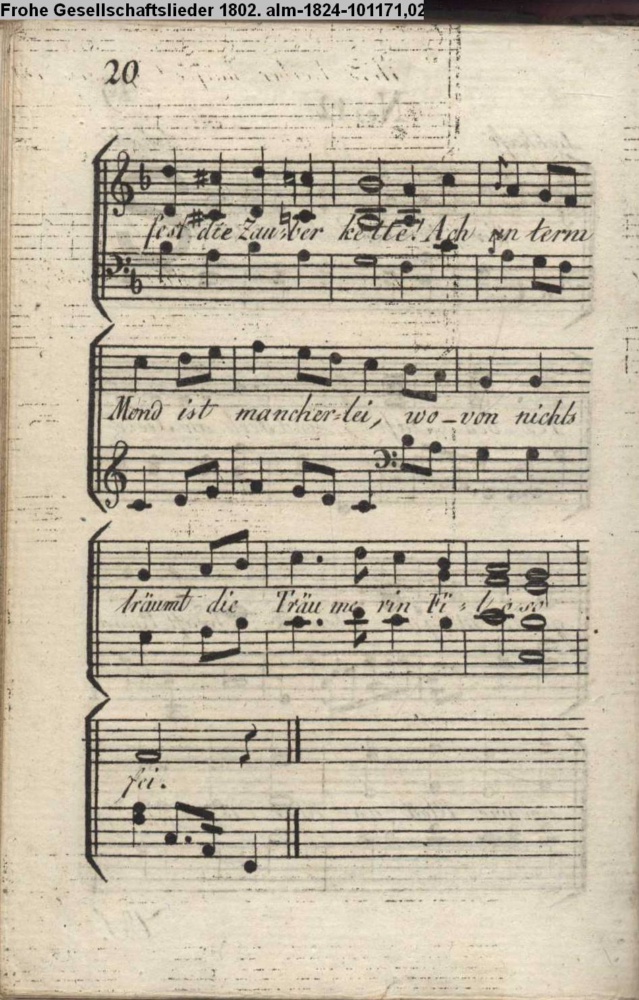 Frohe Gesellschaftslieder 1802. alm-1824-101171,02
20
fest die Zau-ber kette! Ach un term
Mond ist mancher-lei, wo-von nichts
träumt die Träu me rin Fi-lo so
fei.